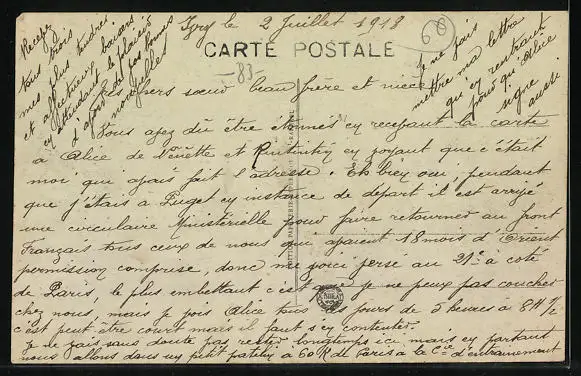 Ivry le 2 Juillet 1918
CARTE POSTALE
-83-
68
Très chers sœur beau frère et nièce
Vous avez dû être étonnés en recevant la carte
à Alice de Nénette et Rintintin en voyant que c'était
moi qui avais fait l'adresse. Eh bien oui, pendant
que j'étais à Puget en instance de départ il est arrivé
une circulaire Ministérielle pour faire retourner au front
Français tous ceux de nous qui avaient 18 mois d'Orient
permission comprise, donc me voici versé au 21e à côté
de Paris, le plus embêtant c'est que je ne peux pas coucher
chez nous, mais je vois Alice tous les jours de 5 heures à 8H 1/2
c'est peut être court mais il faut s'en contenter.
Je ne vais sans doute pas rester longtemps ici mais en partant
nous allons dans un petit patelin à 60 K de Paris à la Cie d'entrainement
Je vais
mettre ma lettre
qu'en rentrant
pour qu'Alice
signe
aussi
Recevez
tous trois
mes plus tendres
et affectueux baisers
en attendant le plaisir
d'avoir de vos bonnes
nouvelles